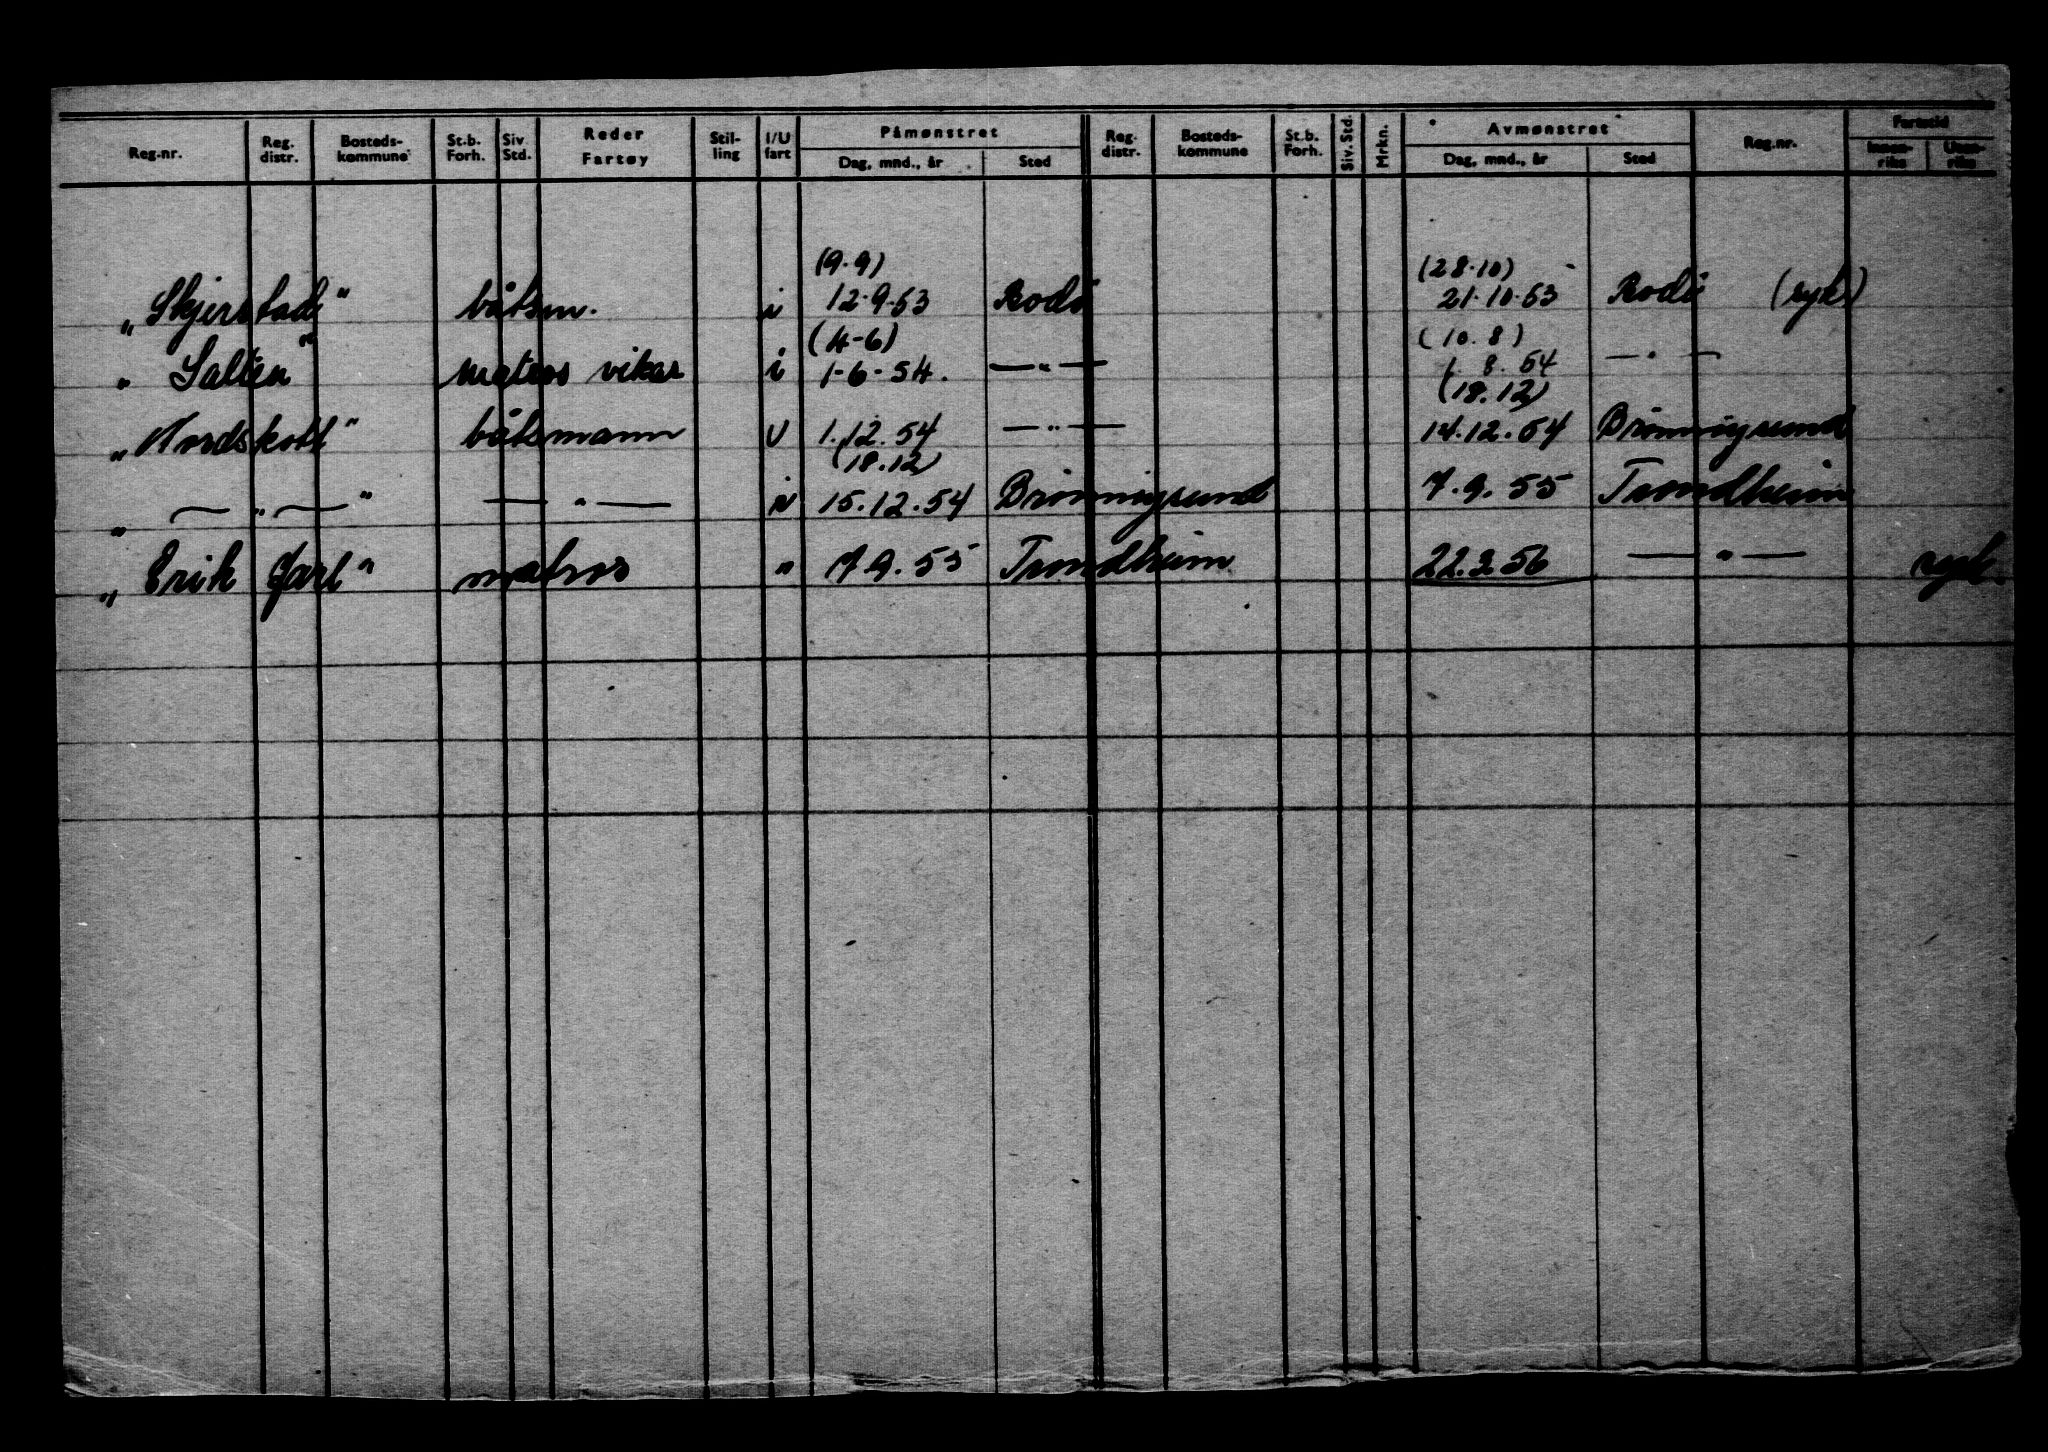 Reg.nr. Reg. distr. Bosteds-kommune St.b. Forh. Siv Std. Reder Fartøy Stil-ling I/U fart Påmønstret Dag, mnd., år Sted Reg. distr. Bosteds-kommune St.b. Forh. Siv. Std. Mrkn. Avmønstret Dag, mnd., år Sted Reg.nr. Fartstid Innen-riks Uten-riks
(9.9) (28.10)
„Skjerstad" båtsm. i 12.9.53 Bodø 21.10.53 Bodø (syk)
(4-6) (10.8)
„Salten" matros vikar i 1-6-54. —„— 1.8.54 —„—
(18.12)
„Nordskott" båtsmann U 1.12.54 —„— 14.12.54 Brønnøysund
(18.12)
„ —„— " —„— i 15.12.54 Brønnøysund 7.9.55 Trondheim
„Erik Jarl" matros " 7.9.55 Trondheim 22.3.56 —„— syk.